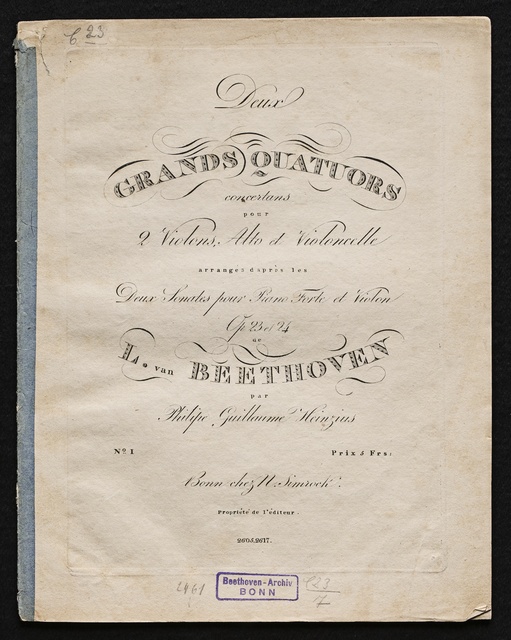 C 23
Deux
GRANDS QUATUORS
concertans
pour
2 Violons, Alto et Violoncelle
arranges daprès les
Deux Sonates pour Piano Forte et Violon
Op 23 et 24
de
L. van BEETHOVEN
par
Philipe Guillaume Heinzius
No 1 Prix 5 Frs:
Bonn chez N. Simrock.
Propriété de l'éditeur.
2605.2617.
Beethoven-Archiv
BONN
C 23